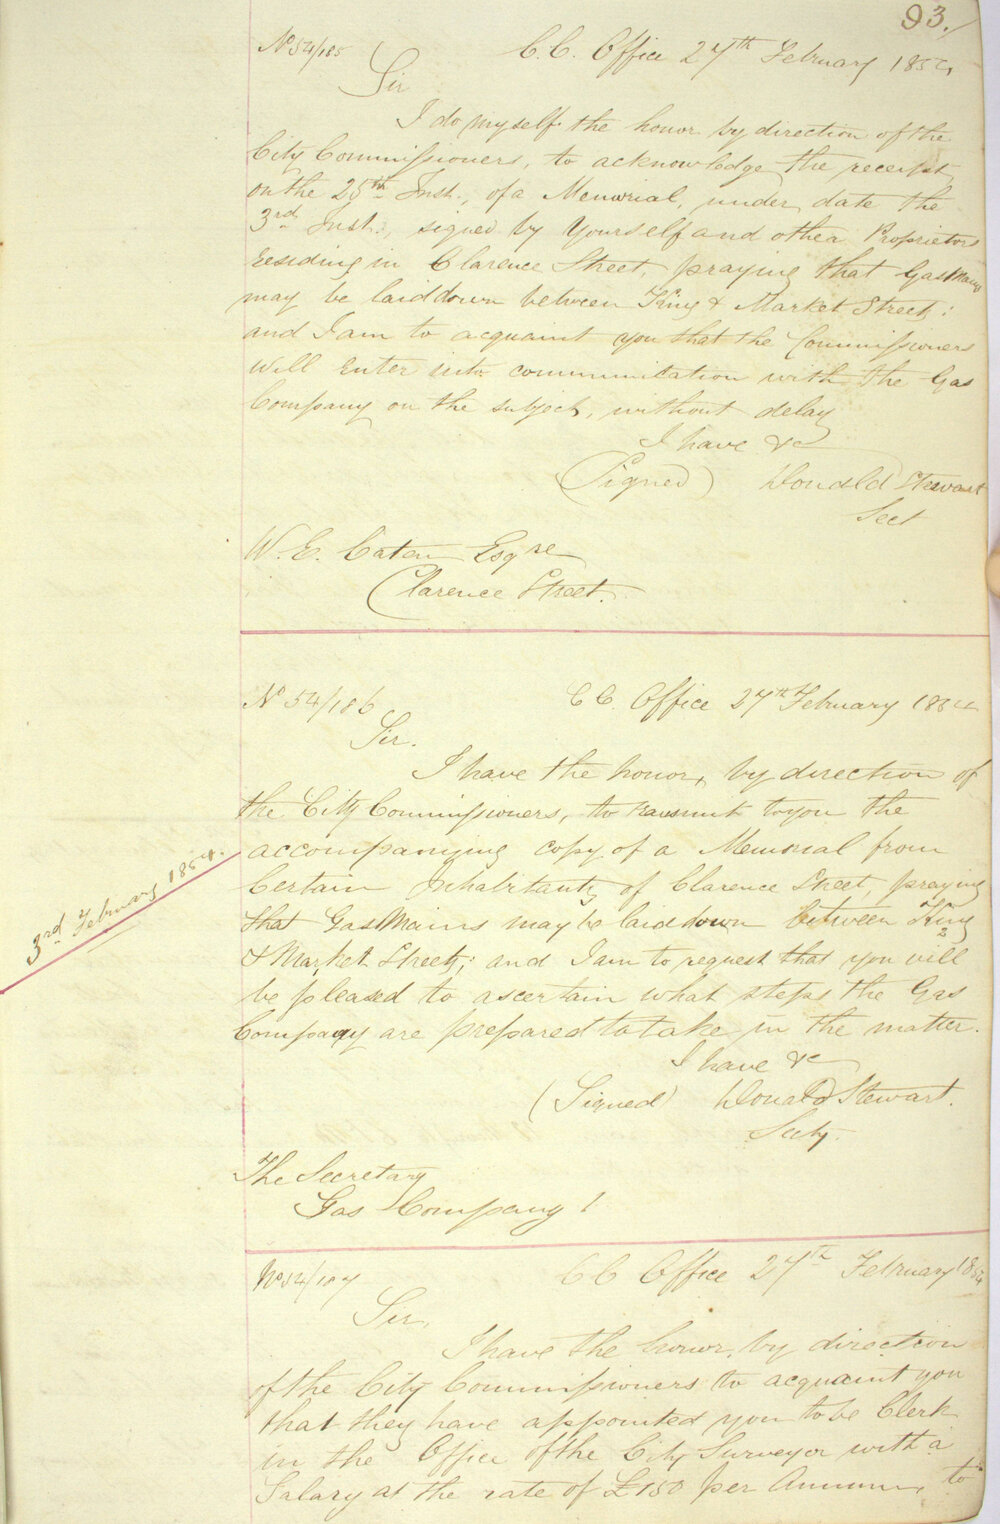 93.
No 54/185 C.C. Office 27th February 1854
Sir
I do myself the honor by direction of the
City Commissioners, to acknowledge the receipt
on the 25th Inst., of a Memorial, under date the
3rd Inst., signed by Yourself and other Proprietors
residing in Clarence Street, praying that Gas Mains
may be laid down between King & Market Streets;
and I am to acquaint you that the Commissioners
will enter into communication with the Gas
Company on the subject, without delay
I have &c
(Signed) Donald Stewart
Sect
W. E. Caten Esqre
Clarence Street.
No 54/186 CC. Office 27th February 1854
Sir.
I have the honor, by direction of
the City Commissioners, to transmit to you the
accompanying copy of a Memorial from
Certain Inhabitants of Clarence Street, praying
that Gas Mains may be laid down between King
& Market Streets; and I am to request that you will
be pleased to ascertain what steps the Gas
Company are prepared to take in the matter.
3rd February 1854.
I have &c
(Signed) Donald Stewart.
Secty.
The Secretary
Gas Company
No 54/187 CC Office 27th February 1854
Sir,
I have the honor, by direction
of the City Commissioners to acquaint you
that they have appointed you to be Clerk
in the Office of the City Surveyor with a
Salary at the rate of £150 per Annum, to